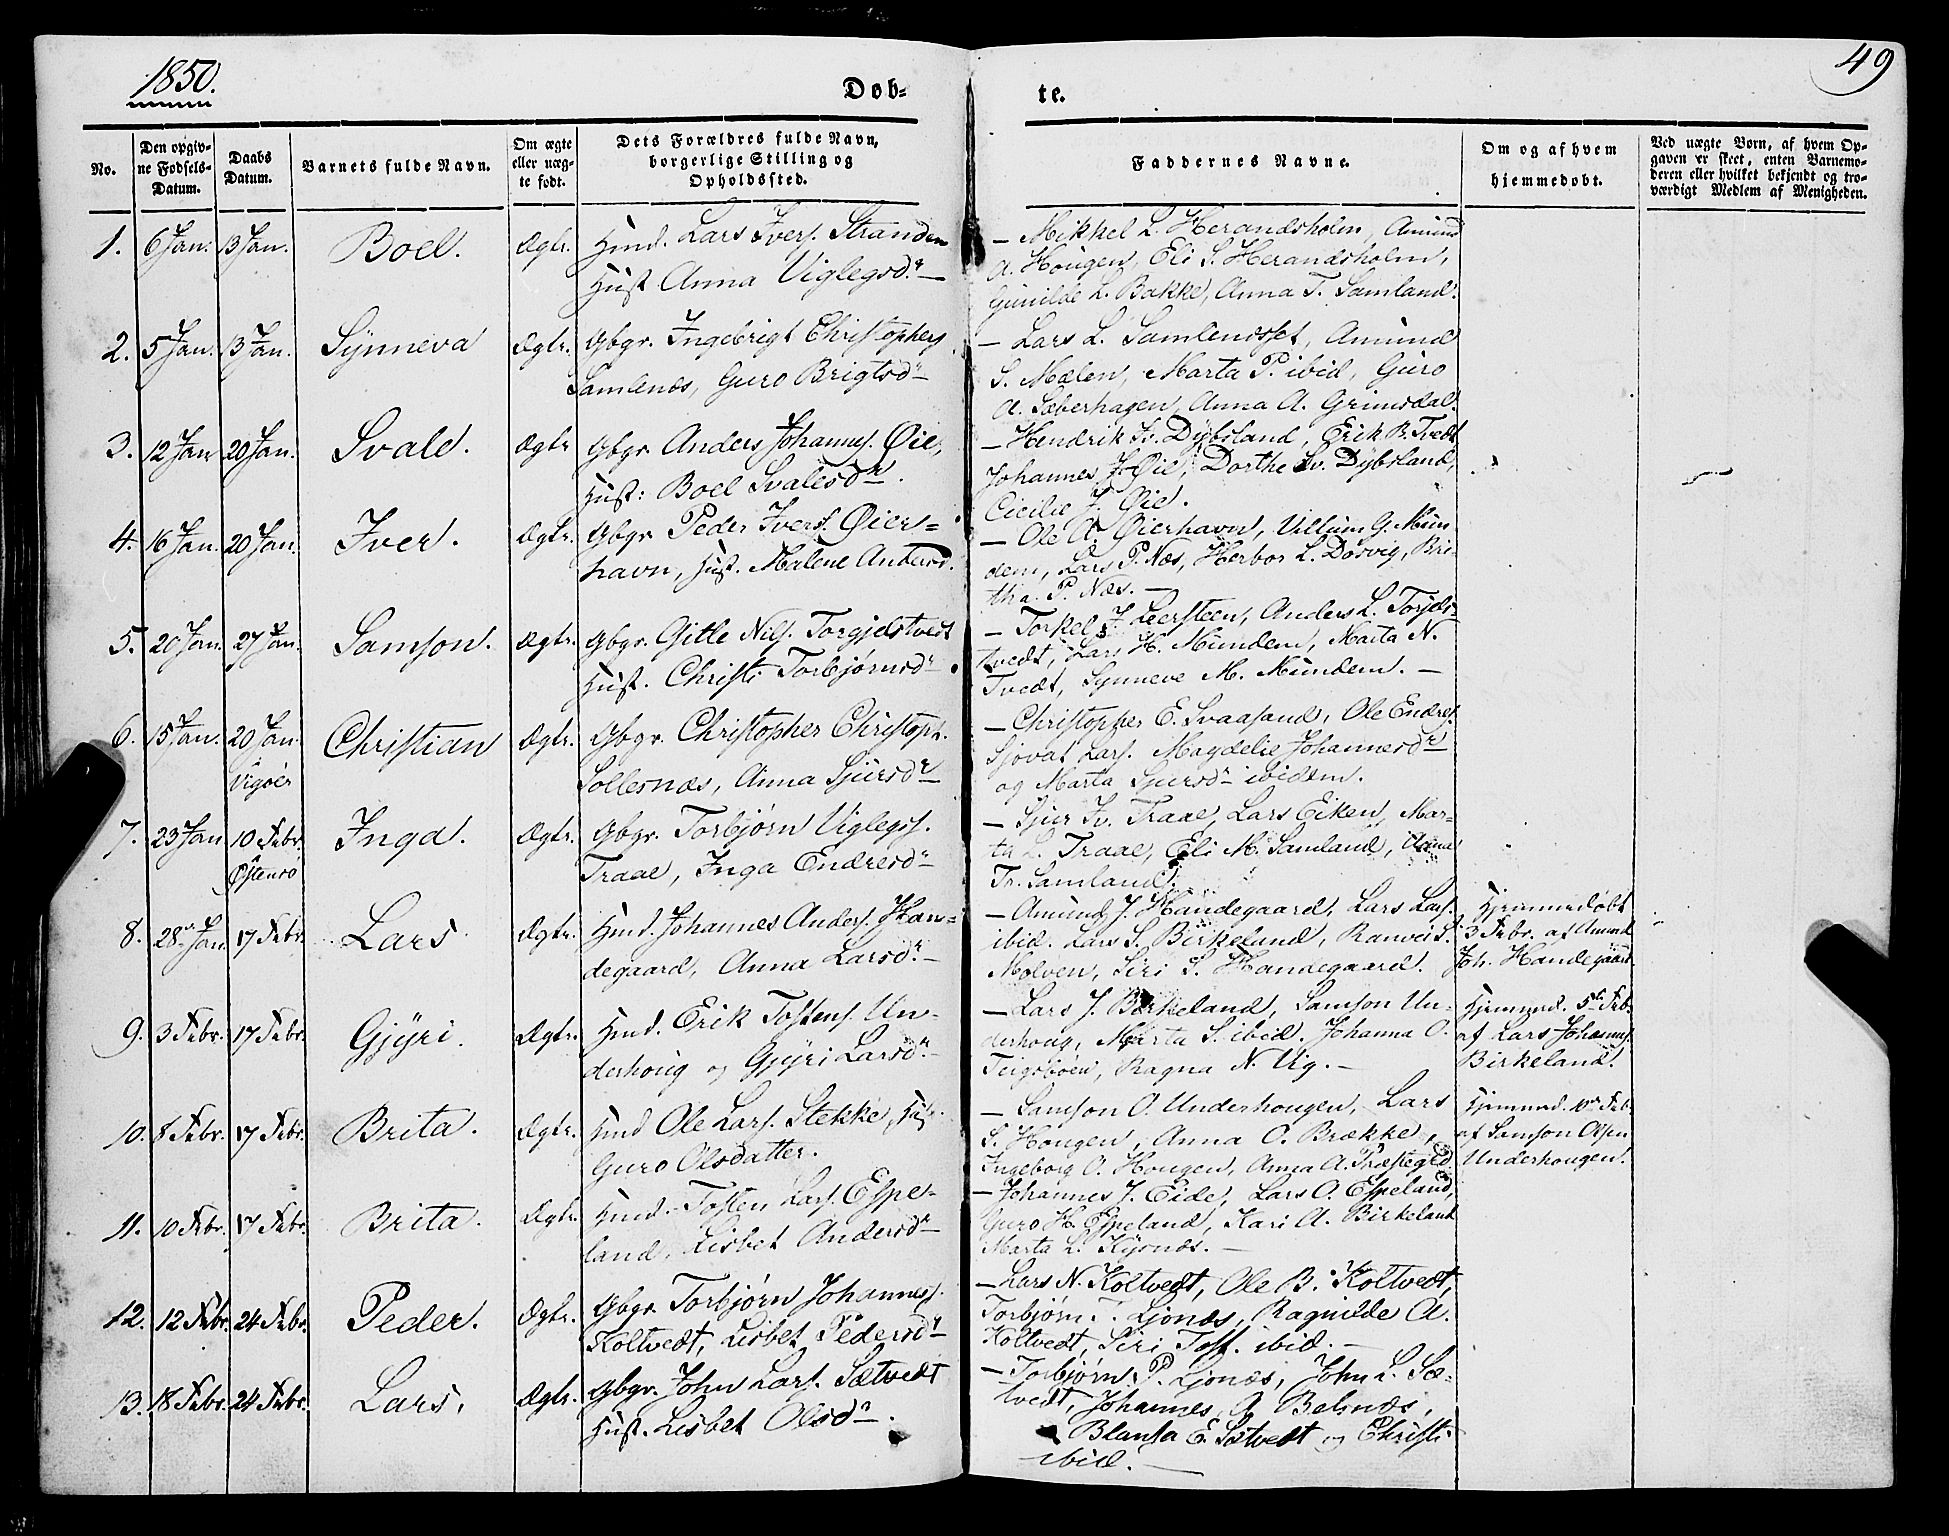 1850.
49
Dob-
te.
No.
Den opgiv-
ne Fødsels-
Datum.
Daabs
Datum.
Barnets fulde Navn.
Om ægte
eller uæg-
te født.
Dets Forældres fulde Navn,
borgerlige Stilling og
Opholdssted.
Faddernes Navne.
Om og af hvem
hjemmedøbt.
Ved uægte Børn, af hvem Op-
gaven er skeet, enten Barnemo-
deren eller hvilket bekjendt og tro-
værdigt Medlem af Menigheden.
1. 6 Jan. 13 Jan. Boel. Ægte. Huusm. Lars Ivers. Stranden
Hust Anna Viglegsdr. —
— Mikkel L. Herandsholm, Amund
A. Hougen, Eli S. Herandsholm,
Gunilde L. Bakke, Anna T. Samland.
2. 5 Jan. 13 Jan. Synneva Ægte. Gbgr. Ingebrigt Christophers.
Samlenæs, Guro Brigtsdr
— Lars L. Samlendset, Amund
S. Mælen, Marta P. ibid, Guro
A. Sæberhagen, Anna A. Grimsdal.
3. 12 Jan 20 Jan. Svale. Ægte Gbgr Anders Johannes. Øie,
Hust: Boel Svalesdr.
— Hendrik Sv. Dybsland, Erik B. Tvedt
Johannes J. Øie, Dorthe Sv. Dybsland,
Cicilie J. Øie.
4. 16 Jan. 20 Jan. Iver. Ægte. Gbgr Peder Ivers. Øier=
havn, Hust. Malene Andersd.
— Ole A. Øierhavn, Villum G. Mun
dem, Lars P. Næs, Herbor L. Døsvig, Bri-
tha P. Næs. —
5. 20 Jan. 27 Jan. Samson. Ægte. Gbgr. Gitle Nils. Torgjelstvedt
Hust. Christi Torbjørnsdr.
— Torkel J. Leersteen, Anders L. Torjels-
tvedt, Lars H. Mundem, Marta N.
Tvedt, Synneve M. Mundem. —
6. 15 Jan. 20 Jan. Christian Ægte. Gbgr. Christopher Christoph.
Vigøer Sollesnæs, Anna Sjursdr
— Christopher E. Svaasand, Ole Endres.
Sjovat Lars. Magdelie Johannesdr
og Marta Sjursdr ibidem.
7. 23 Jan 10 Febr. Inga. Ægte. Gbgr. Torbjørn Viglegs.
Østensø Traae, Inga Endresdr
— Sjur Iv. Traae, Lars Eiken, Mar-
ta L. Traae, Eli M. Samland, Anna
Tr. Samland.
8. 28 Jan. 17 Febr. Lars Ægte. Huusm. Johannes Anders. Han=
degaard, Anna Larsdr. —
— Amund J. Handegaard, Lars Lars.
ibid. Lars S. Birkeland, Ranvei S.
Molven, Siri S. Handegaard.
Hjemmedøbt
3 Febr. af Amund
Joh. Handegaard.
9. 3 Febr. 17 Febr. Gjyri. Ægte. Huusm. Erik Tostens. Un-
derhoug og Gjyri Larsdr. —
— Lars J. Birkeland, Samson Un-
derhoug, Marta S. ibid. Johanna O.
Teigsbøen, Ragna N. Vig. —
Hjemmed. 5te Febr.
af Lars Johannes.
Birkeland.
10. 8 Febr. 17 Febr. Brita. Ægte. Huusm Ole Lars. Stekke, Hust.
Guro Olsdatter.
— Samson O. Underhougen, Lars
S. Hougen, Anna O. Brække,
Ingeborg O. Hougen, Anna A. Præstegd.
Hjemmed. 10de Feb.
af Samson Olsen
Underhougen.
11. 10 Febr. 17 Febr. Brita. Ægte. Huusm. Tosten Lars. Espe-
land, Lisbet Andersdr
— Johannes J. Eide, Lars O. Espeland,
Guro H. Espeland, Kari A. Birkeland
Marta L. Kysnæs. —
12. 12 Febr. 24 Febr. Peder. Ægte. Gbgr. Torbjørn Johannes.
Koltvedt, Lisbet Pedersdr
— Lars N. Koltvedt, Ole B. Koltvedt,
Torbjørn T. Ljonæs, Ragnilde A.
Koltvedt, Siri Tost. ibid. —
13. 18 Febr. 24 Febr. Lars. Ægte. Gbgr. John Lars. Sætvedt
Hust. Lisbet Olsdr.
— Torbjørn P. Ljonæs, John L. Sæ-
tvedt, Johannes A. Belsnæs,
Blansa E. Sætvedt og Christi
ibid. —